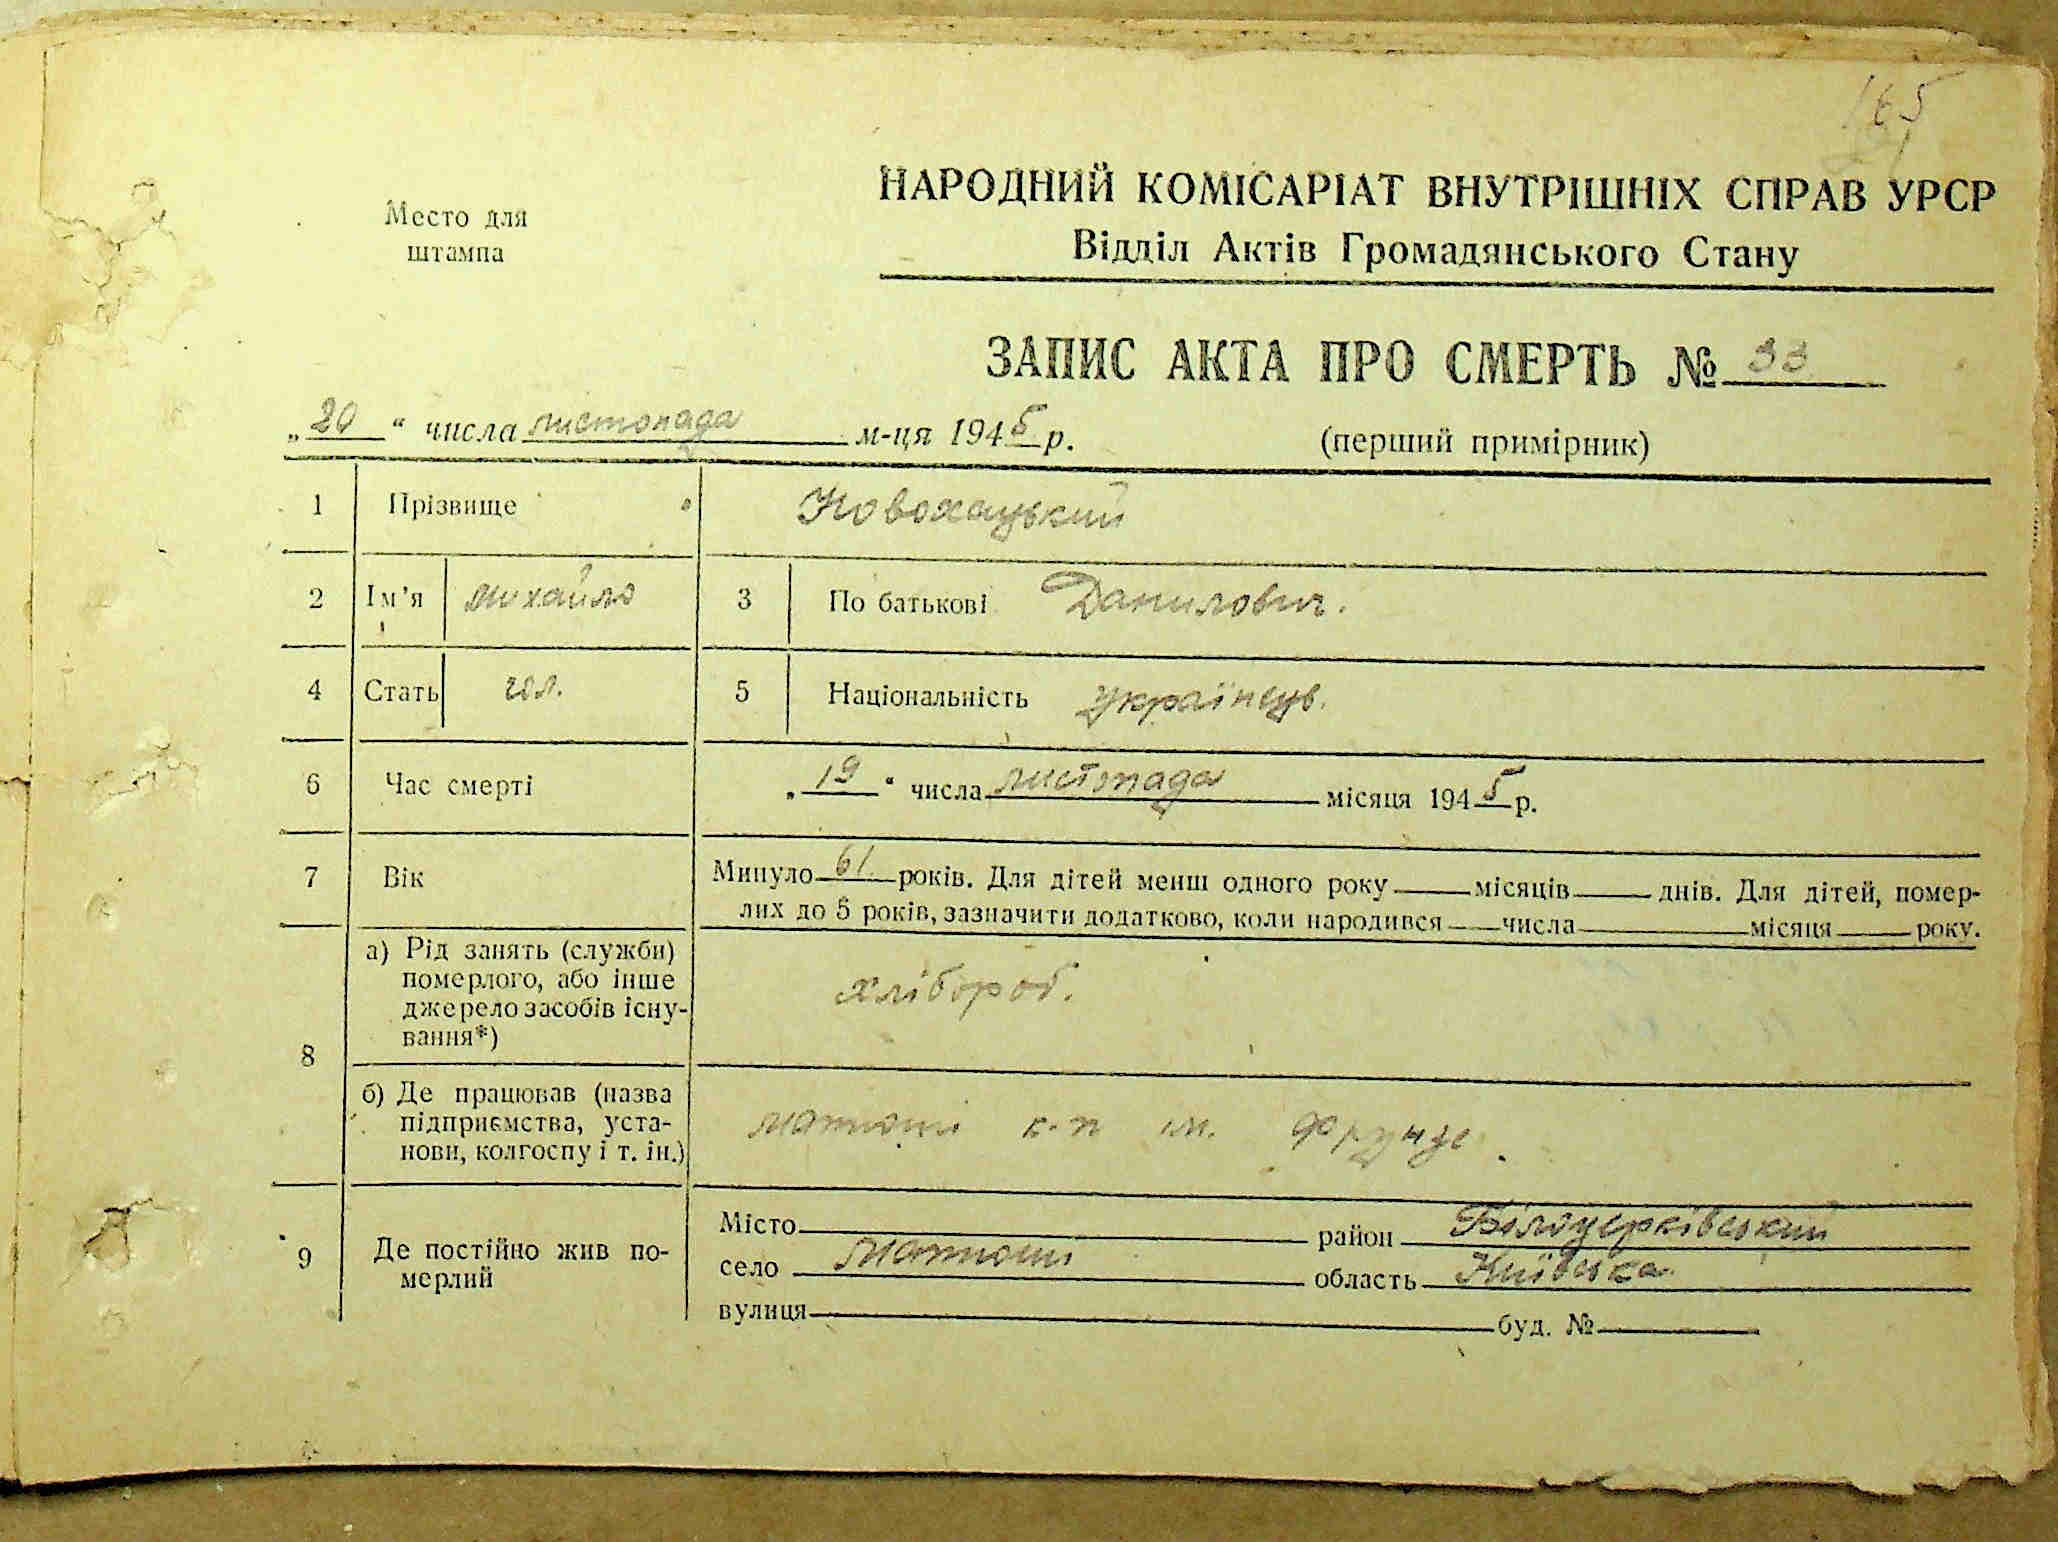 165
Место для
штампа
НАРОДНИЙ КОМІСАРІАТ ВНУТРІШНІХ СПРАВ УРСР
Відділ Актів Громадянського Стану
ЗАПИС АКТА ПРО СМЕРТЬ № 33
„20“ числа листопада м-ця 1945 р.
(перший примірник)
1 Прізвище Новохацький
2 Ім'я михайло 3 По батькові Данилович.
4 Стать чол. 5 Національність українець.
6 Час смерті „19“ числа листопада місяця 1945 р.
7 Вік Минуло 61 років. Для дітей менш одного року місяців днів. Для дітей, помер-
лих до 5 років, зазначити додатково, коли народився числа місяця року.
8 а) Рід занять (служби)
померлого, або інше
джерело засобів існу-
вання*)
хлібороб.
б) Де працював (назва
підприємства, уста-
нови, колгоспу і т. ін.)
матюші к-п ім. Фрунзе.
9 Де постійно жив по-
мерлий
Місто район Білоцерківський
село Матюші область Київська
вулиця буд. №